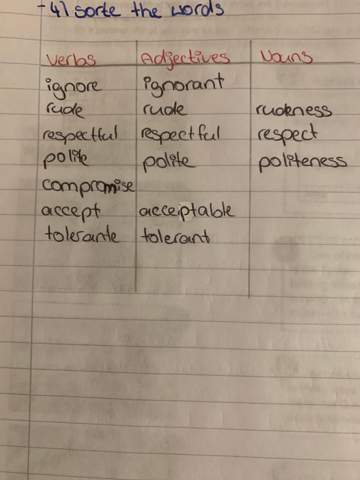 -4) sorte the words
Verbs Adjectives Nouns
ignore ignorant
rude rude rudeness
respectful respectful respect
polite polite politeness
compromise
accept acceptable
tolerante tolerant